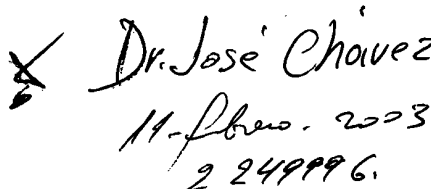 Dr. José Chávez
11-febrero. 2003
2 249996.